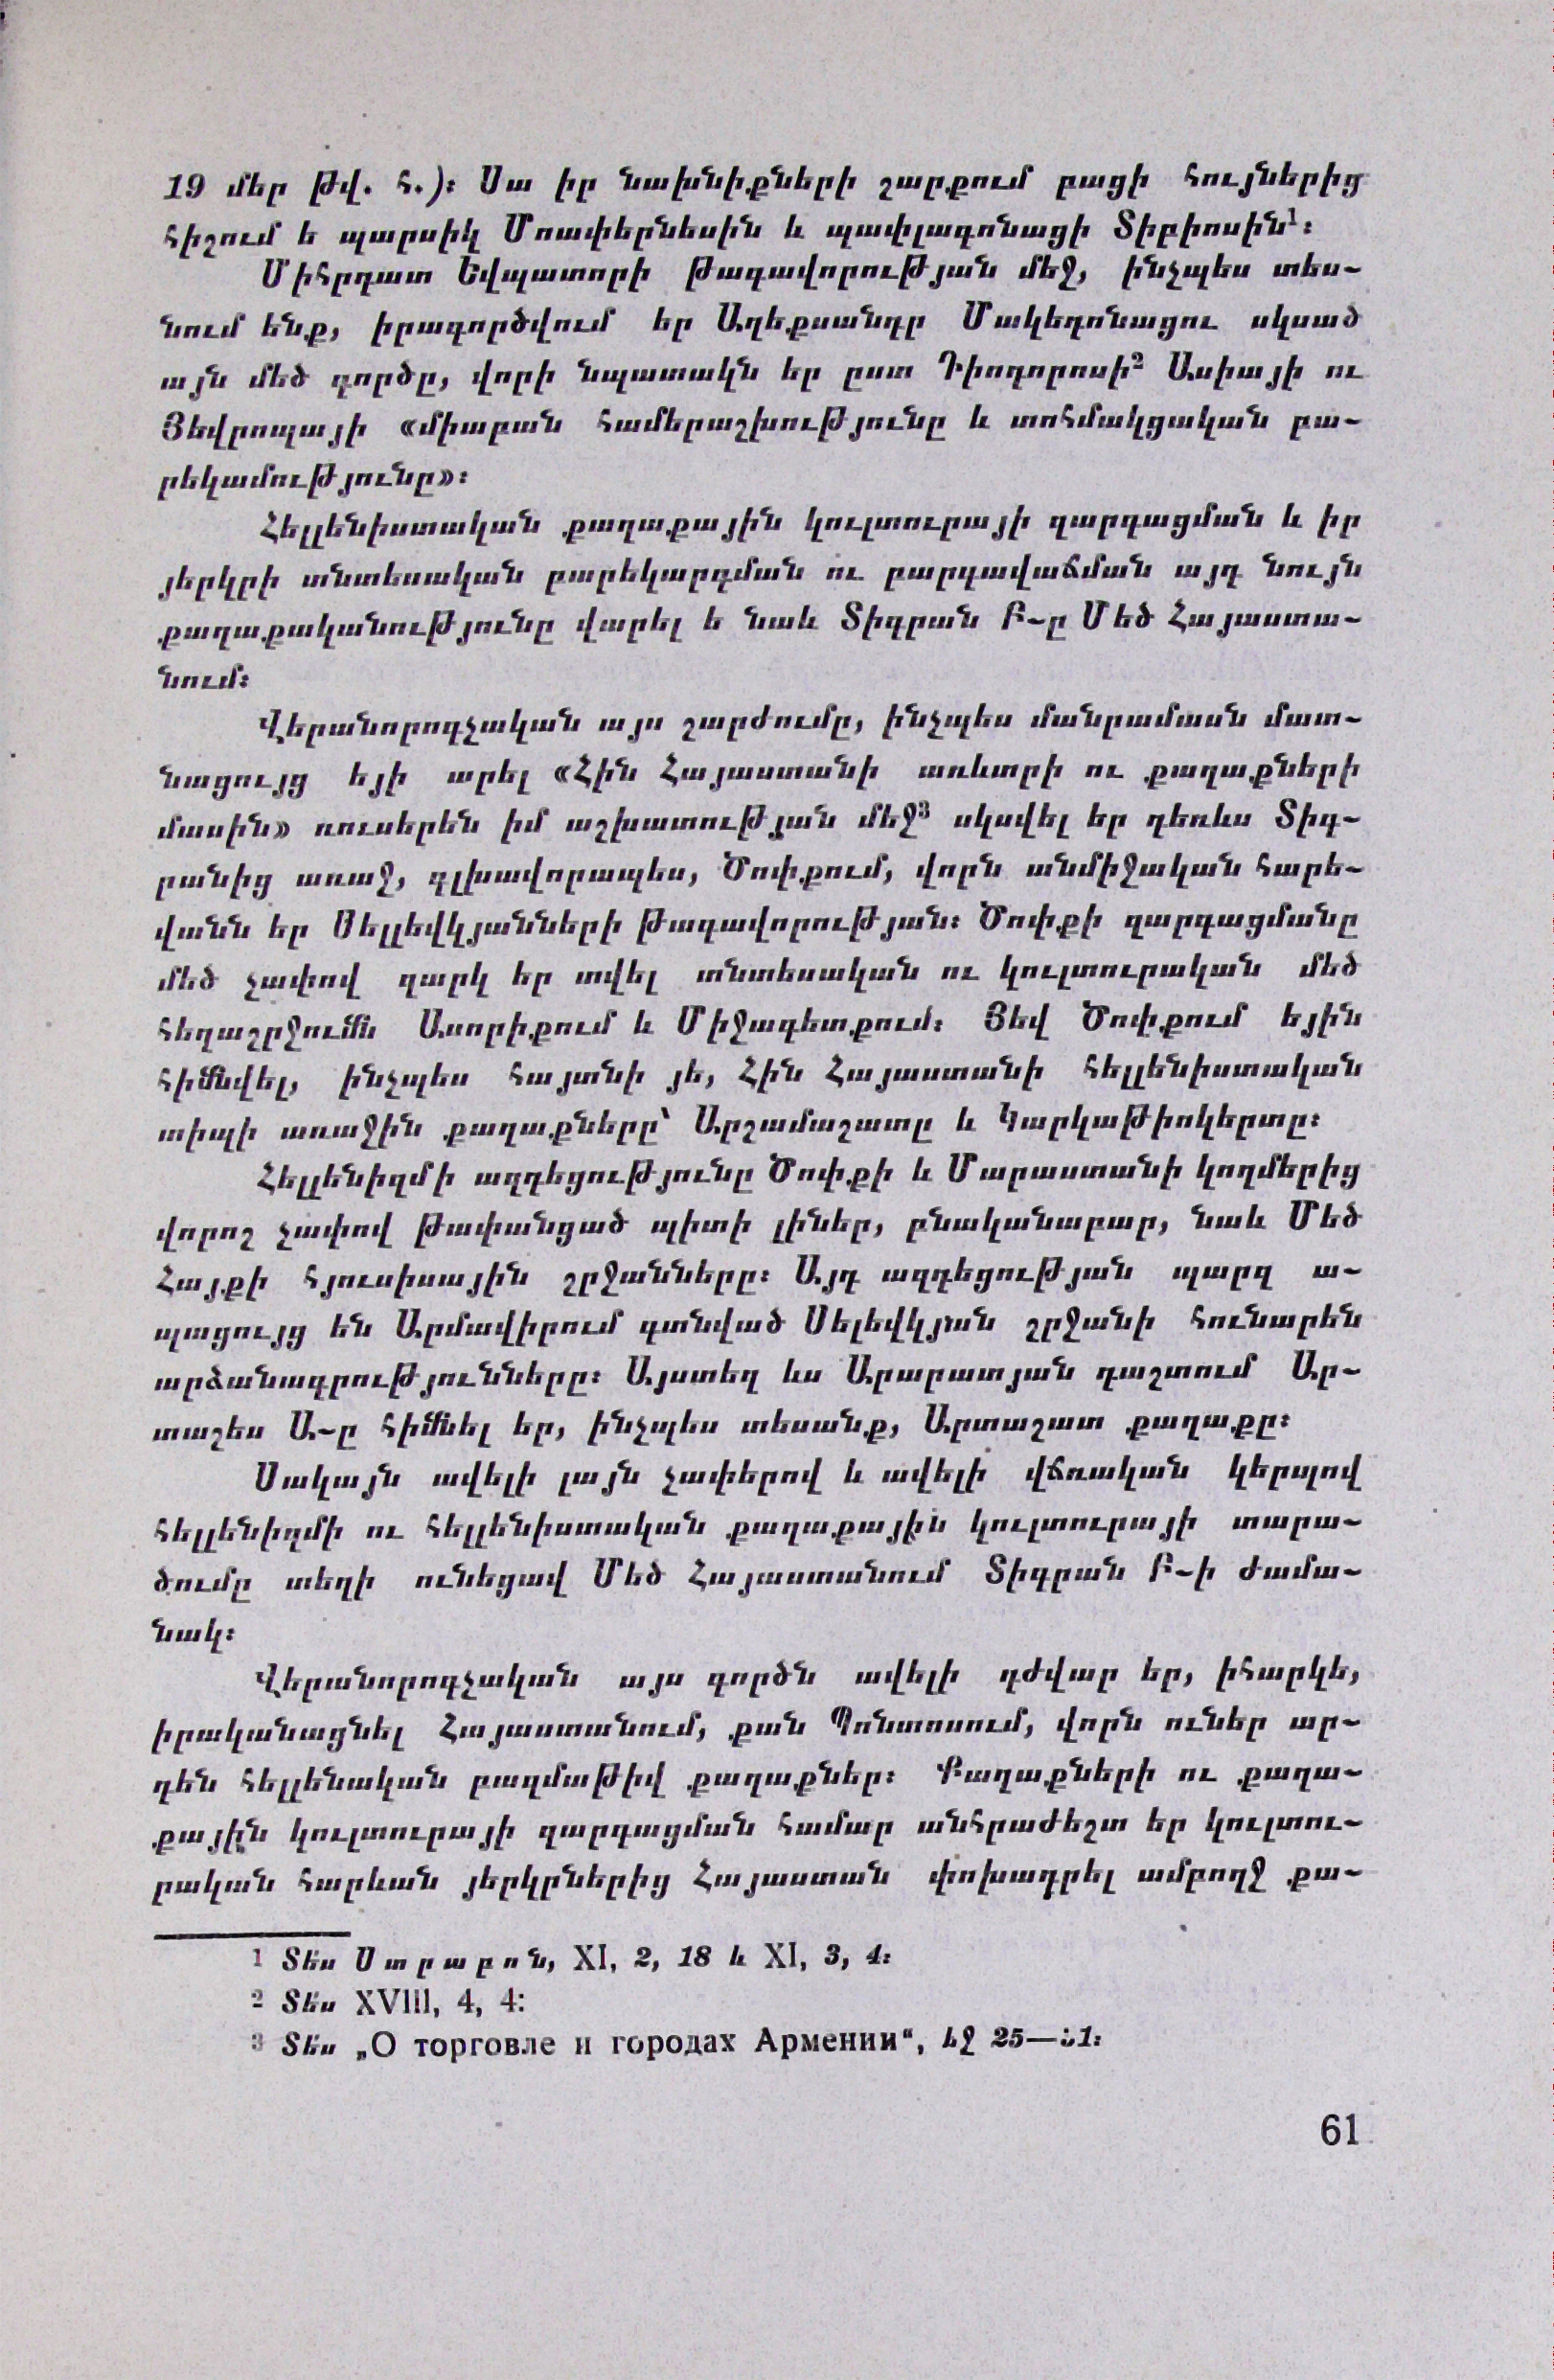 19 մեր թվ. հ.)։ Սա իր նախնիքների շարքում բացի հույներից
հիշում ե պարսիկ Մոափերնեսին և պափլագոնացի Տիբիոսին¹։
Միհրդատ Եվպատորի թագավորության մեջ, ինչպես տես-
նում ենք, իրագործվում եր Աղեքսանդր Մակեդոնացու սկսած
այն մեծ գործը, վորի նպատակն եր ըստ Դիոդորոսի² Ասիայի ու
Յեվրոպայի «միաբան համերաշխությունը և տոհմակցական բա-
րեկամությունը»։
Հելլենիստական քաղաքային կուլտուրայի զարգացման և իր
յերկրի տնտեսական բարեկարգման ու բարգավաճման այդ նույն
քաղաքականությունը վարել ե նաև Տիգրան Բ-ը Մեծ Հայաստա-
նում։
Վերանորոգչական այս շարժումը, ինչպես մանրամասն մատ-
նացույց եյի արել «Հին Հայաստանի առևտրի ու քաղաքների
մասին» ռուսերեն իմ աշխատության մեջ³ սկսվել եր դեռևս Տիգ-
րանից առաջ, գլխավորապես, Ծոփքում, վորն անմիջական հարե-
վանն եր Սելլեվկյանների թագավորության։ Ծոփքի զարգացմանը
մեծ չափով զարկ եր տվել տնտեսական ու կուլտուրական մեծ
հեղաշրջումն Ասորիքում և Միջագետքում։ Յեվ Ծոփքում եյին
հիմնվել, ինչպես հայտնի յե, Հին Հայաստանի հելլենիստական
տիպի առաջին քաղաքները՝ Արշամաշատը և Կարկաթիոկերտը։
Հելլենիզմի ազդեցությունը Ծոփքի և Մարաստանի կողմերից
վորոշ չափով թափանցած պիտի լիներ, բնականաբար, նաև Մեծ
Հայքի հյուսիսային շրջանները։ Այդ ազդեցության պարզ ա-
պացույց են Արմավիրում գտնված Սելեվկյան շրջանի հունարեն
արձանագրությունները։ Այստեղ ևս Արարատյան դաշտում Ար-
տաշես Ա-ը հիմնել եր, ինչպես տեսանք, Արտաշատ քաղաքը։
Սակայն ավելի լայն չափերով և ավելի վճռական կերպով
հելլենիզմի ու հելլենիստական քաղաքային կուլտուրայի տարա-
ծումը տեղի ունեցավ Մեծ Հայաստանում Տիգրան Բ-ի ժամա-
նակ։
Վերանորոգչական այս գործն ավելի դժվար եր, իհարկե,
իրականացնել Հայաստանում, քան Պոնտոսում, վորն ուներ ար-
դեն հելլենական բազմաթիվ քաղաքներ։ Քաղաքների ու քաղա-
քային կուլտուրայի զարգացման համար անհրաժեշտ եր կուլտու-
րական հարևան յերկրներից Հայաստան փոխադրել ամբողջ քա-
1 Տես Ստրաբոն, XI, 2, 18 և XI, 3, 4։
2 Տես XVIII, 4, 4:
3 Տես „О торговле и городах Армении“, եջ 25—31։
61